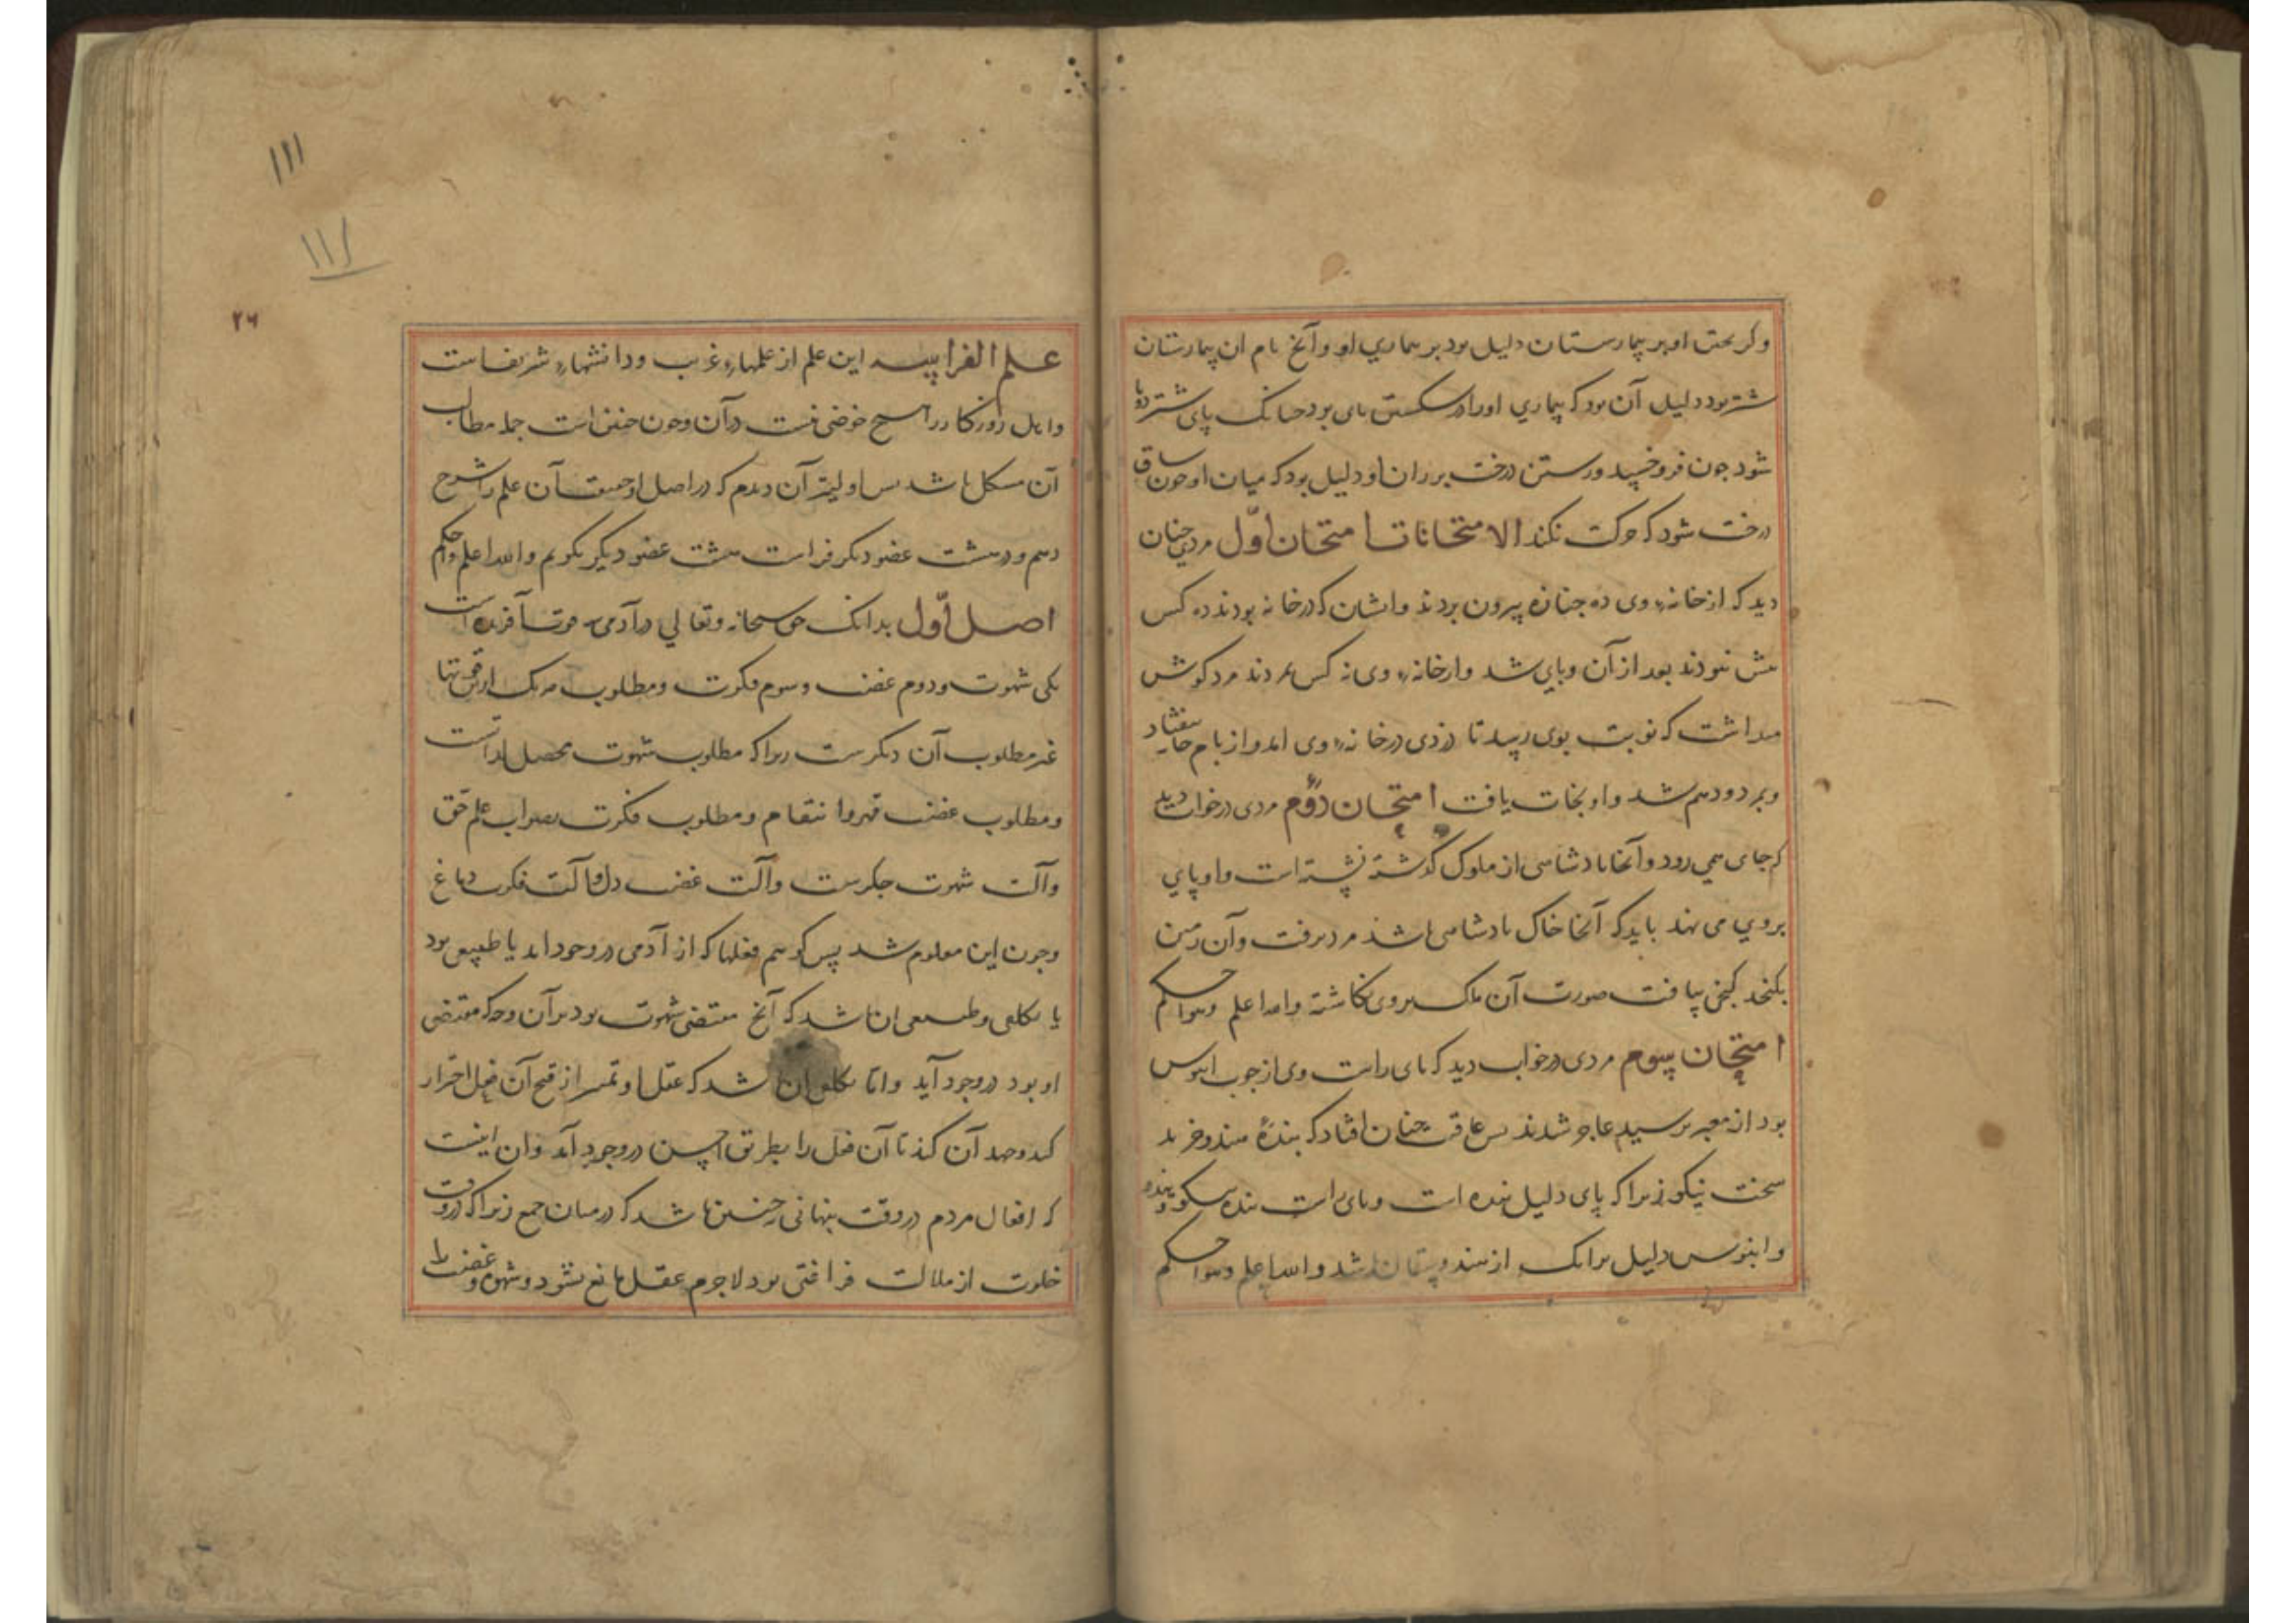 وگریختن او بر بیمارستان دلیل بود بر بیماری او و آنچ نام ان بیمارستان
شتر بود دلیل آن بود که بیماری او را در شکستن پای بود چنانک پای شتر دوتا
شود چون فرو خسپید و رستن درخت بر ران او دلیل بود که میان او چون ساق
درخت شود که حرکت نکند الامتحانات امتحان اوّل مردی چنان
دید که از خانهٔ وی ده جنازه بیرون بردند و ایشان که در خانه بودند ده کس
بیش نبودند بعد از آن وبایی شد و از خانهٔ وی نه کس بمردند مرد گوش
میداشت که نوبت بوی رسید تا دزدی در خانهٔ وی امد و از بام خانه بیفتاد
و بمرد و دهم شد و او نجات یافت امتحان دوّم مردی در خواب دید
که جای همی رود و آنجا پادشاهی از ملوک گذشته نشسته است و او پای
بروی می نهد باید که آنجا خاک پادشاهی باشد مرد برفت و آن زمین
بکند گنجی بیافت صورت آن ملک بروی نگاشته والله اعلم وهو احکم
امتحان سیوم مردی در خواب دید که پای راست وی از چوب ابنوس
بود از معبر پرسید عاجز شدند پس عاقبت چنان افتاد که بندهٔ هندو خرید
سخت نیکو زیرا که پای دلیل بنده است و پای راست بنده نیکو بود
و ابنوس دلیل برانک از هندوستان باشد والله اعلم وهو احکم
۱۱۱
۱۱۱
۲۶
علم الفراسه این علم از علمهاء غریب و دانشهاء شریفست
و اهل روزگار را هیچ خوضی نیست در آن و چون چنین است جمله مطالب
آن مشکل باشد پس اولیتر آن دیدم که در اصل او حقیقت آن علم را شرح
دهم و در هشت عضو دیگر فراست هشت عضو دیگر بگویم والله اعلم واحکم
اصل اوّل بدانک حق سبحانه وتعالی در آدمی سه قوت آفریده است
یکی شهوت و دوم غضب و سوم فکرت و مطلوب هر یک ازین قوتها
غیر مطلوب آن دیگرست زیرا که مطلوب شهوت تحصیل لذاتست
و مطلوب غضب قهر و انتقام و مطلوب فکرت صواب علم حق
و آلت شهوت جگرست و آلت غضب دل و آلت فکرت دماغ
و چون این معلوم شد پس گوییم فعلها که از آدمی در وجود آید یا طبیعی بود
یا تکلفی و طبیعی ان باشد که آنچ مقتضی شهوت بود بر آن وجه که مقتضی
او بود در وجود آید و اما تکلفی ان باشد که عقل او تمییز از قبح آن فعل احتراز
کند و جهد آن کند تا آن فعل را بطریق احسن در وجود آید و ان اینست
که افعال مردم در وقت پنهانی نه چنین باشد که در میان جمع زیرا که در وقت
خلوت از ملالت فراغتی بود لاجرم عقل مانع نشود و شهوت و غضب را